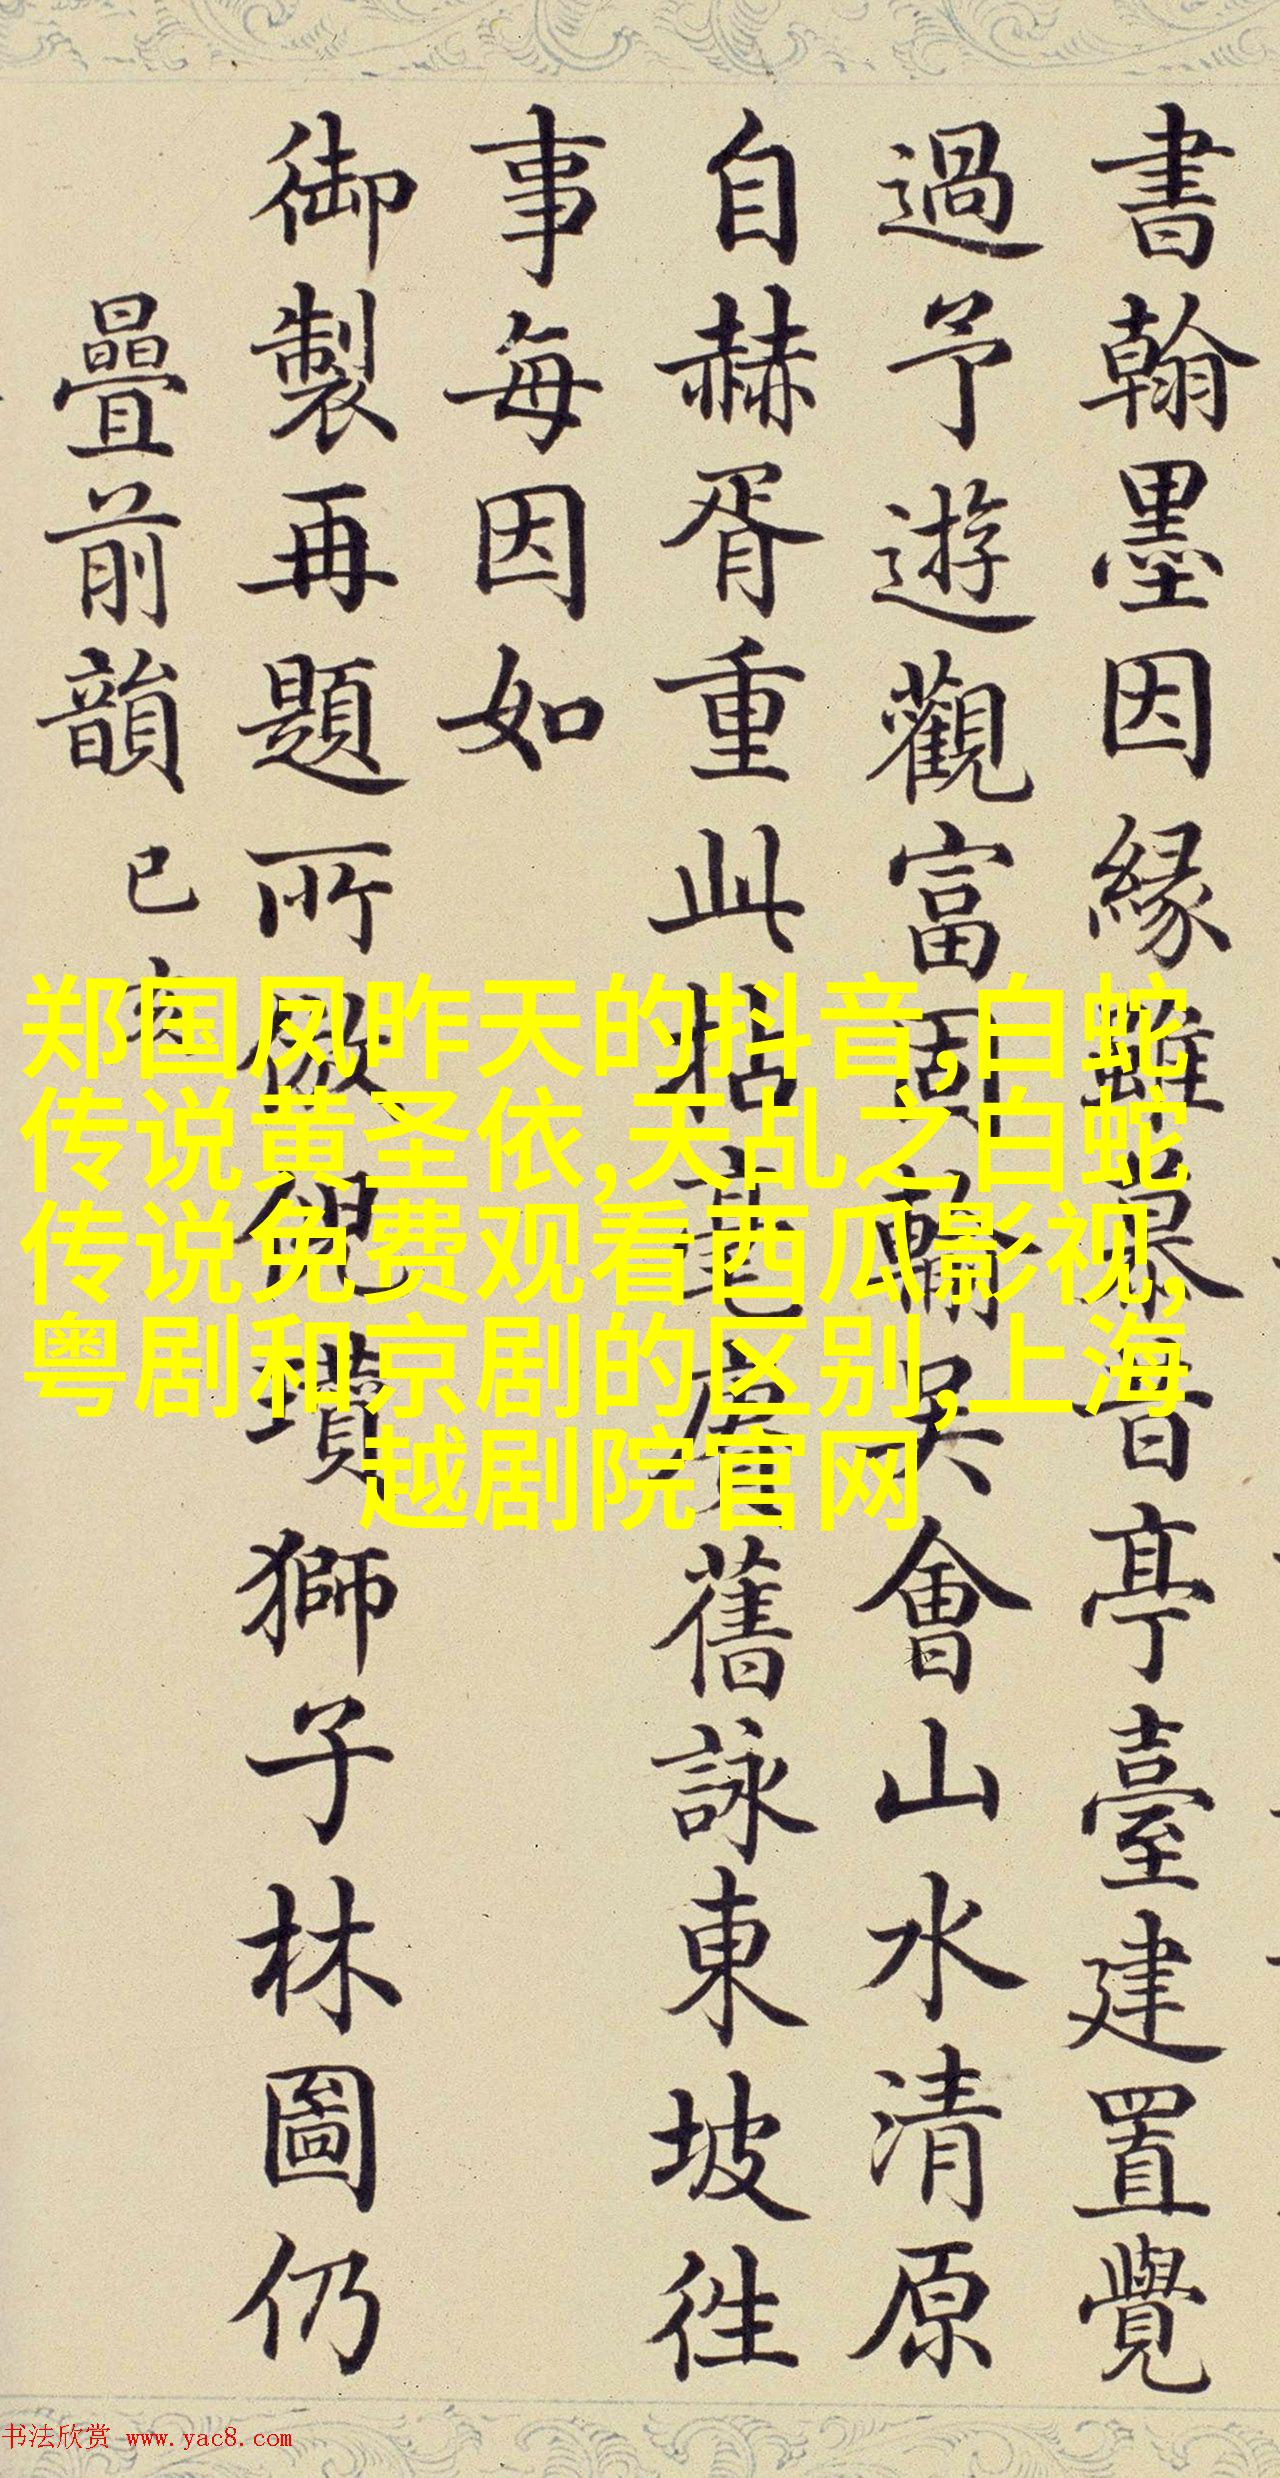 書翰墨因緣雖昔亭臺建置覺
過予遊觀富吳會山水清原
自赫胥重此拈毫賡舊詠東坡徃
事每因如
御製再題所倣倪瓚獅子林圖仍
疊前韻 己亥
郑国凤昨天的抖音,白蛇
传说黄圣依,天乱之白蛇
传说免费观看西瓜影视,
粤剧和京剧的区别,上海
越剧院官网
书法欣赏 www.yac8.com